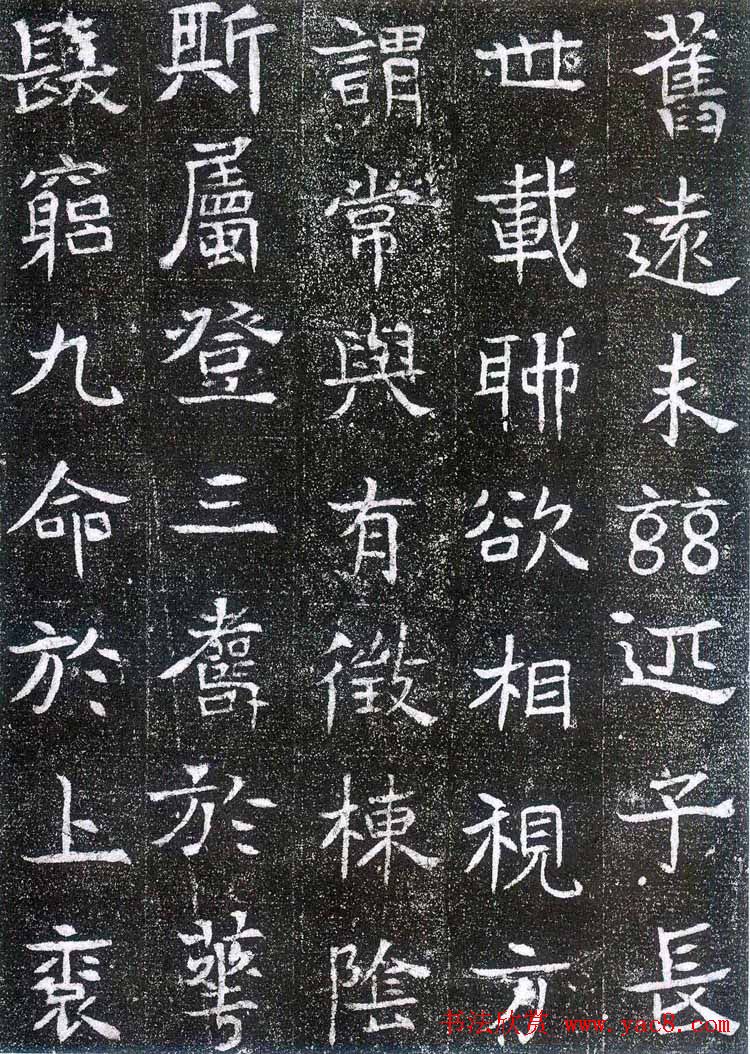 舊遠未茲迊子長
世載聯欲相視方
謂常與有徵棟陰
斯屬登三壽於華
髮窮九命於上袞
书法欣赏 www.yac8.com